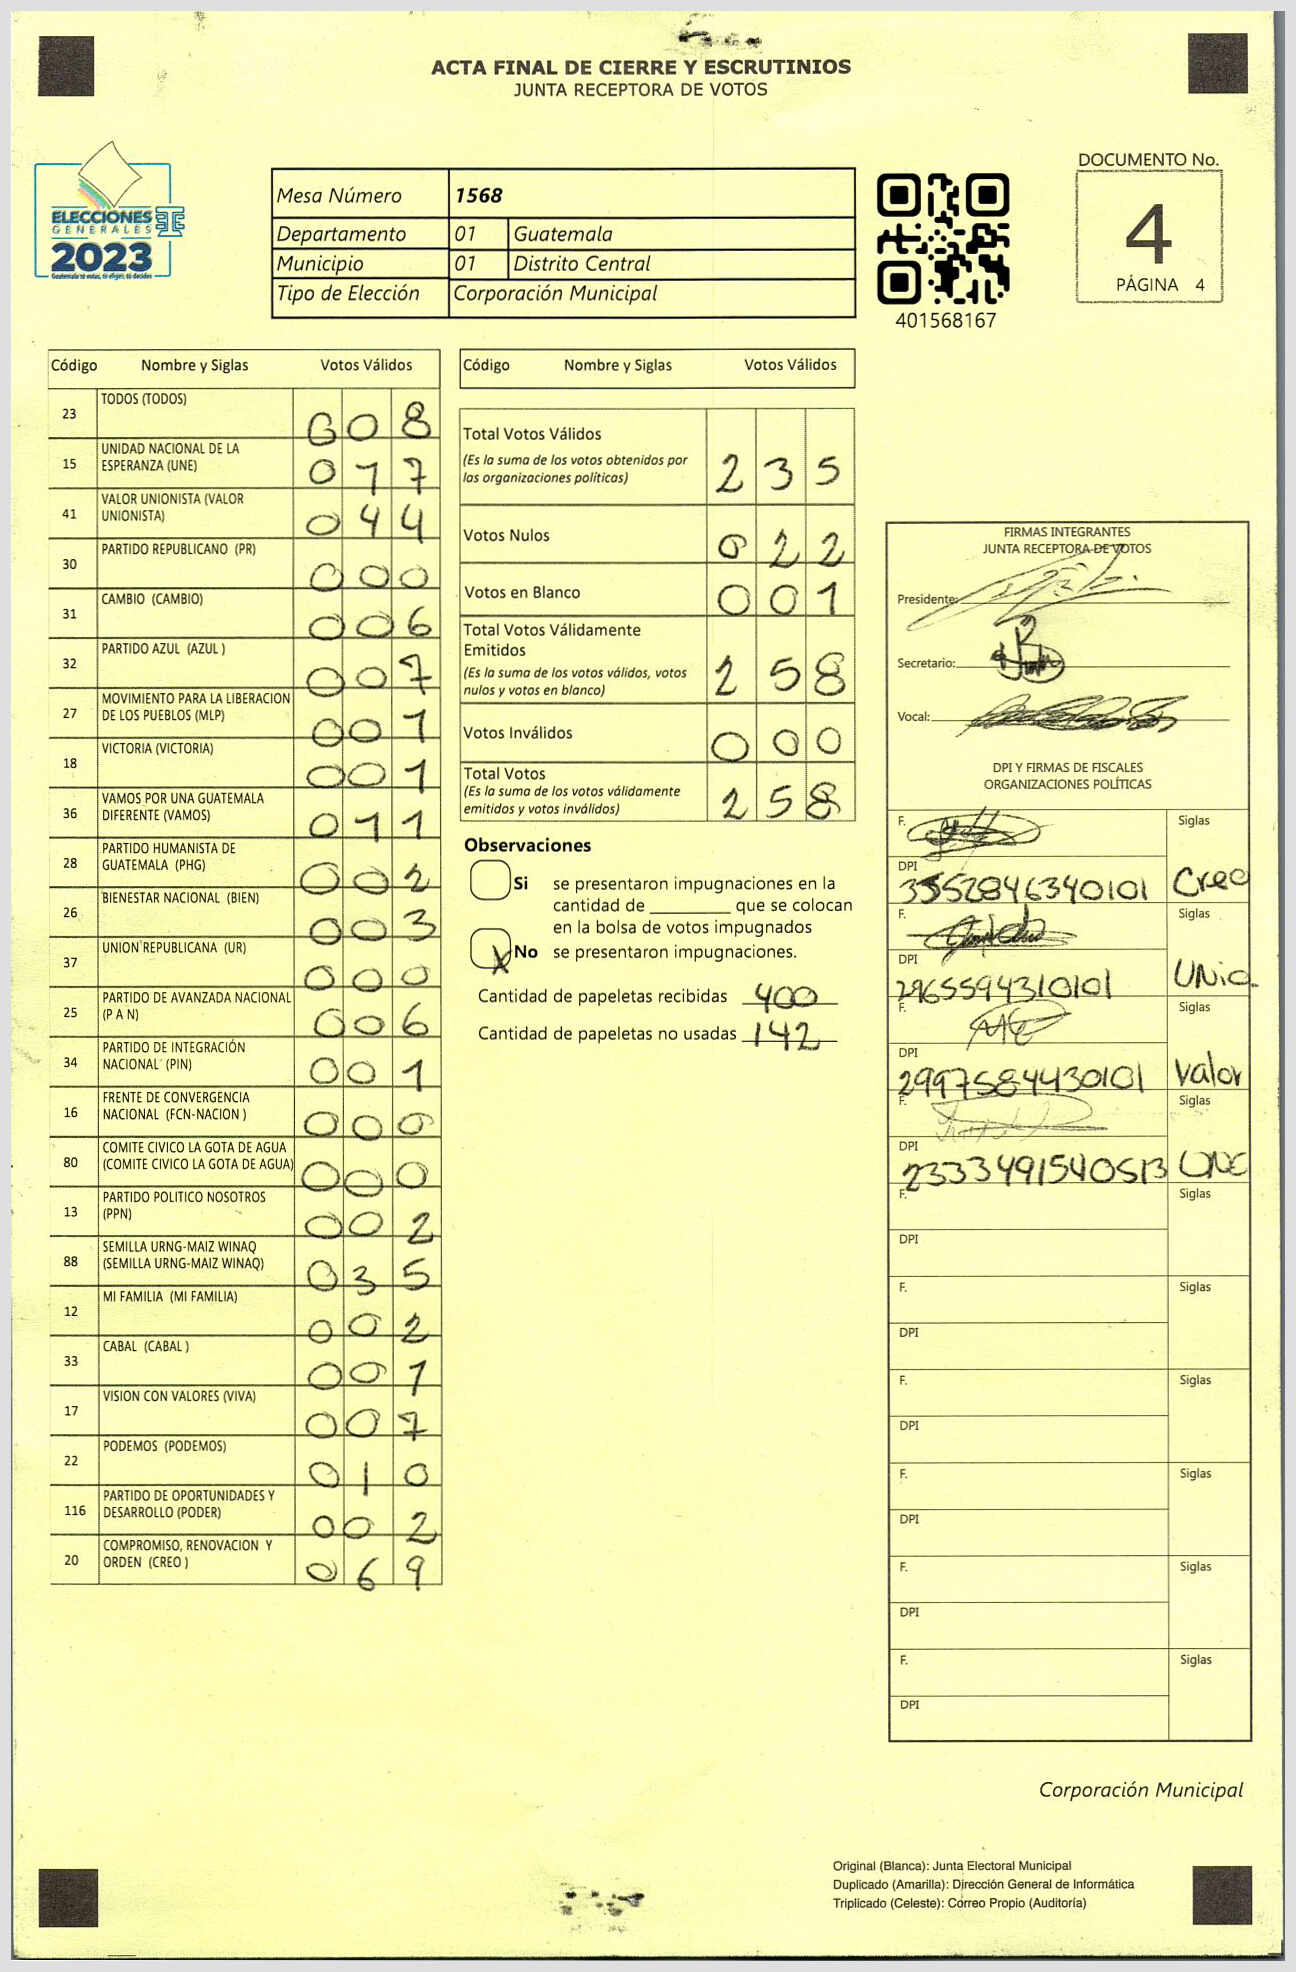 ACTA FINAL DE CIERRE Y ESCRUTINIOS
JUNTA RECEPTORA DE VOTOS
ELECCIONES
GENERALES
2023
Guatemala tú votas, tú eliges, tú decides
Mesa Número 1568
Departamento 01 Guatemala
Municipio 01 Distrito Central
Tipo de Elección Corporación Municipal
401568167
DOCUMENTO No.
4
PÁGINA 4
Código Nombre y Siglas Votos Válidos
23 TODOS (TODOS) 008
15 UNIDAD NACIONAL DE LA
ESPERANZA (UNE) 017
41 VALOR UNIONISTA (VALOR
UNIONISTA) 044
30 PARTIDO REPUBLICANO (PR) 000
31 CAMBIO (CAMBIO) 006
32 PARTIDO AZUL (AZUL ) 007
27 MOVIMIENTO PARA LA LIBERACION
DE LOS PUEBLOS (MLP) 001
18 VICTORIA (VICTORIA) 001
36 VAMOS POR UNA GUATEMALA
DIFERENTE (VAMOS) 011
28 PARTIDO HUMANISTA DE
GUATEMALA (PHG) 002
26 BIENESTAR NACIONAL (BIEN) 003
37 UNION REPUBLICANA (UR) 000
25 PARTIDO DE AVANZADA NACIONAL
(P A N) 006
34 PARTIDO DE INTEGRACIÓN
NACIONAL (PIN) 001
16 FRENTE DE CONVERGENCIA
NACIONAL (FCN-NACION ) 000
80 COMITE CIVICO LA GOTA DE AGUA
(COMITE CIVICO LA GOTA DE AGUA) 000
13 PARTIDO POLITICO NOSOTROS
(PPN) 002
88 SEMILLA URNG-MAIZ WINAQ
(SEMILLA URNG-MAIZ WINAQ) 035
12 MI FAMILIA (MI FAMILIA) 002
33 CABAL (CABAL ) 001
17 VISION CON VALORES (VIVA) 007
22 PODEMOS (PODEMOS) 010
116 PARTIDO DE OPORTUNIDADES Y
DESARROLLO (PODER) 002
20 COMPROMISO, RENOVACION Y
ORDEN (CREO ) 069
Código Nombre y Siglas Votos Válidos
Total Votos Válidos
(Es la suma de los votos obtenidos por
las organizaciones políticas) 235
Votos Nulos 022
Votos en Blanco 001
Total Votos Válidamente
Emitidos
(Es la suma de los votos válidos, votos
nulos y votos en blanco) 258
Votos Inválidos 000
Total Votos
(Es la suma de los votos válidamente
emitidos y votos inválidos) 258
Observaciones
Si se presentaron impugnaciones en la
cantidad de ________ que se colocan
en la bolsa de votos impugnados
X No se presentaron impugnaciones.
Cantidad de papeletas recibidas 400
Cantidad de papeletas no usadas 142
FIRMAS INTEGRANTES
JUNTA RECEPTORA DE VOTOS
Presidente:
Secretario:
Vocal:
DPI Y FIRMAS DE FISCALES
ORGANIZACIONES POLÍTICAS
F. Siglas
DPI 3552846340101 Creo
F. Siglas
DPI 2965594310101 UNio
F. Siglas
DPI 2997584430101 Valor
F. Siglas
DPI 2333491540513 UNE
F. Siglas
DPI
F. Siglas
DPI
F. Siglas
DPI
F. Siglas
DPI
F. Siglas
DPI
F. Siglas
DPI
Corporación Municipal
Original (Blanca): Junta Electoral Municipal
Duplicado (Amarilla): Dirección General de Informática
Triplicado (Celeste): Correo Propio (Auditoría)